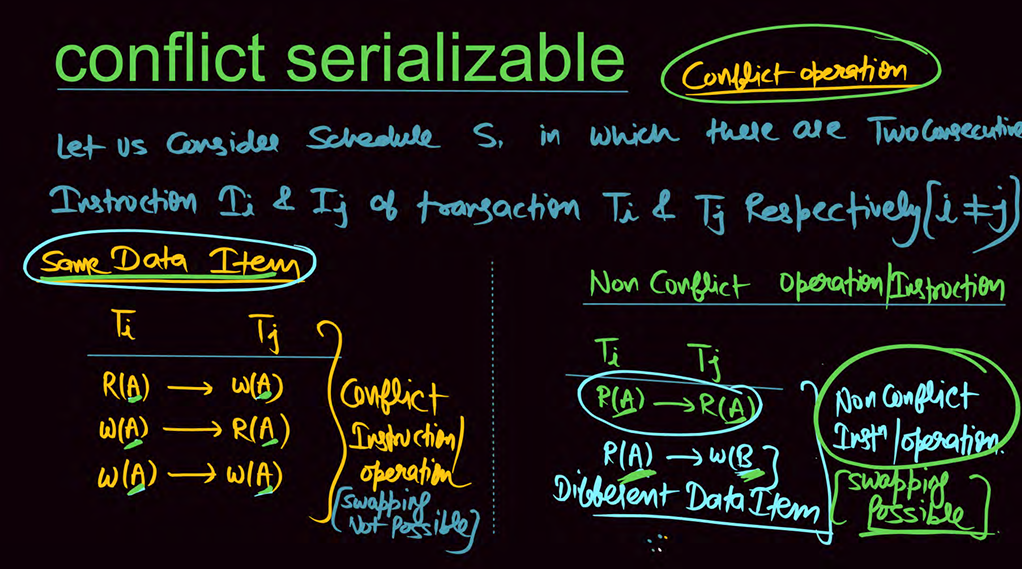 conflict serializable
Conflict operation
Let us Consider Schedule S, in which there are Two Consecutive
Instruction Ii & Ij of transaction Ti & Tj Respectively (i ≠ j)
Same Data Item
Ti Tj
R(A) → W(A)
W(A) → R(A)
W(A) → W(A)
Conflict
Instruction/
operation
(swapping
Not Possible)
Non Conflict operation/Instruction
Ti Tj
R(A) → R(A)
R(A) → W(B)
Different Data Item
Non Conflict
Instⁿ/operation.
[swapping
Possible]